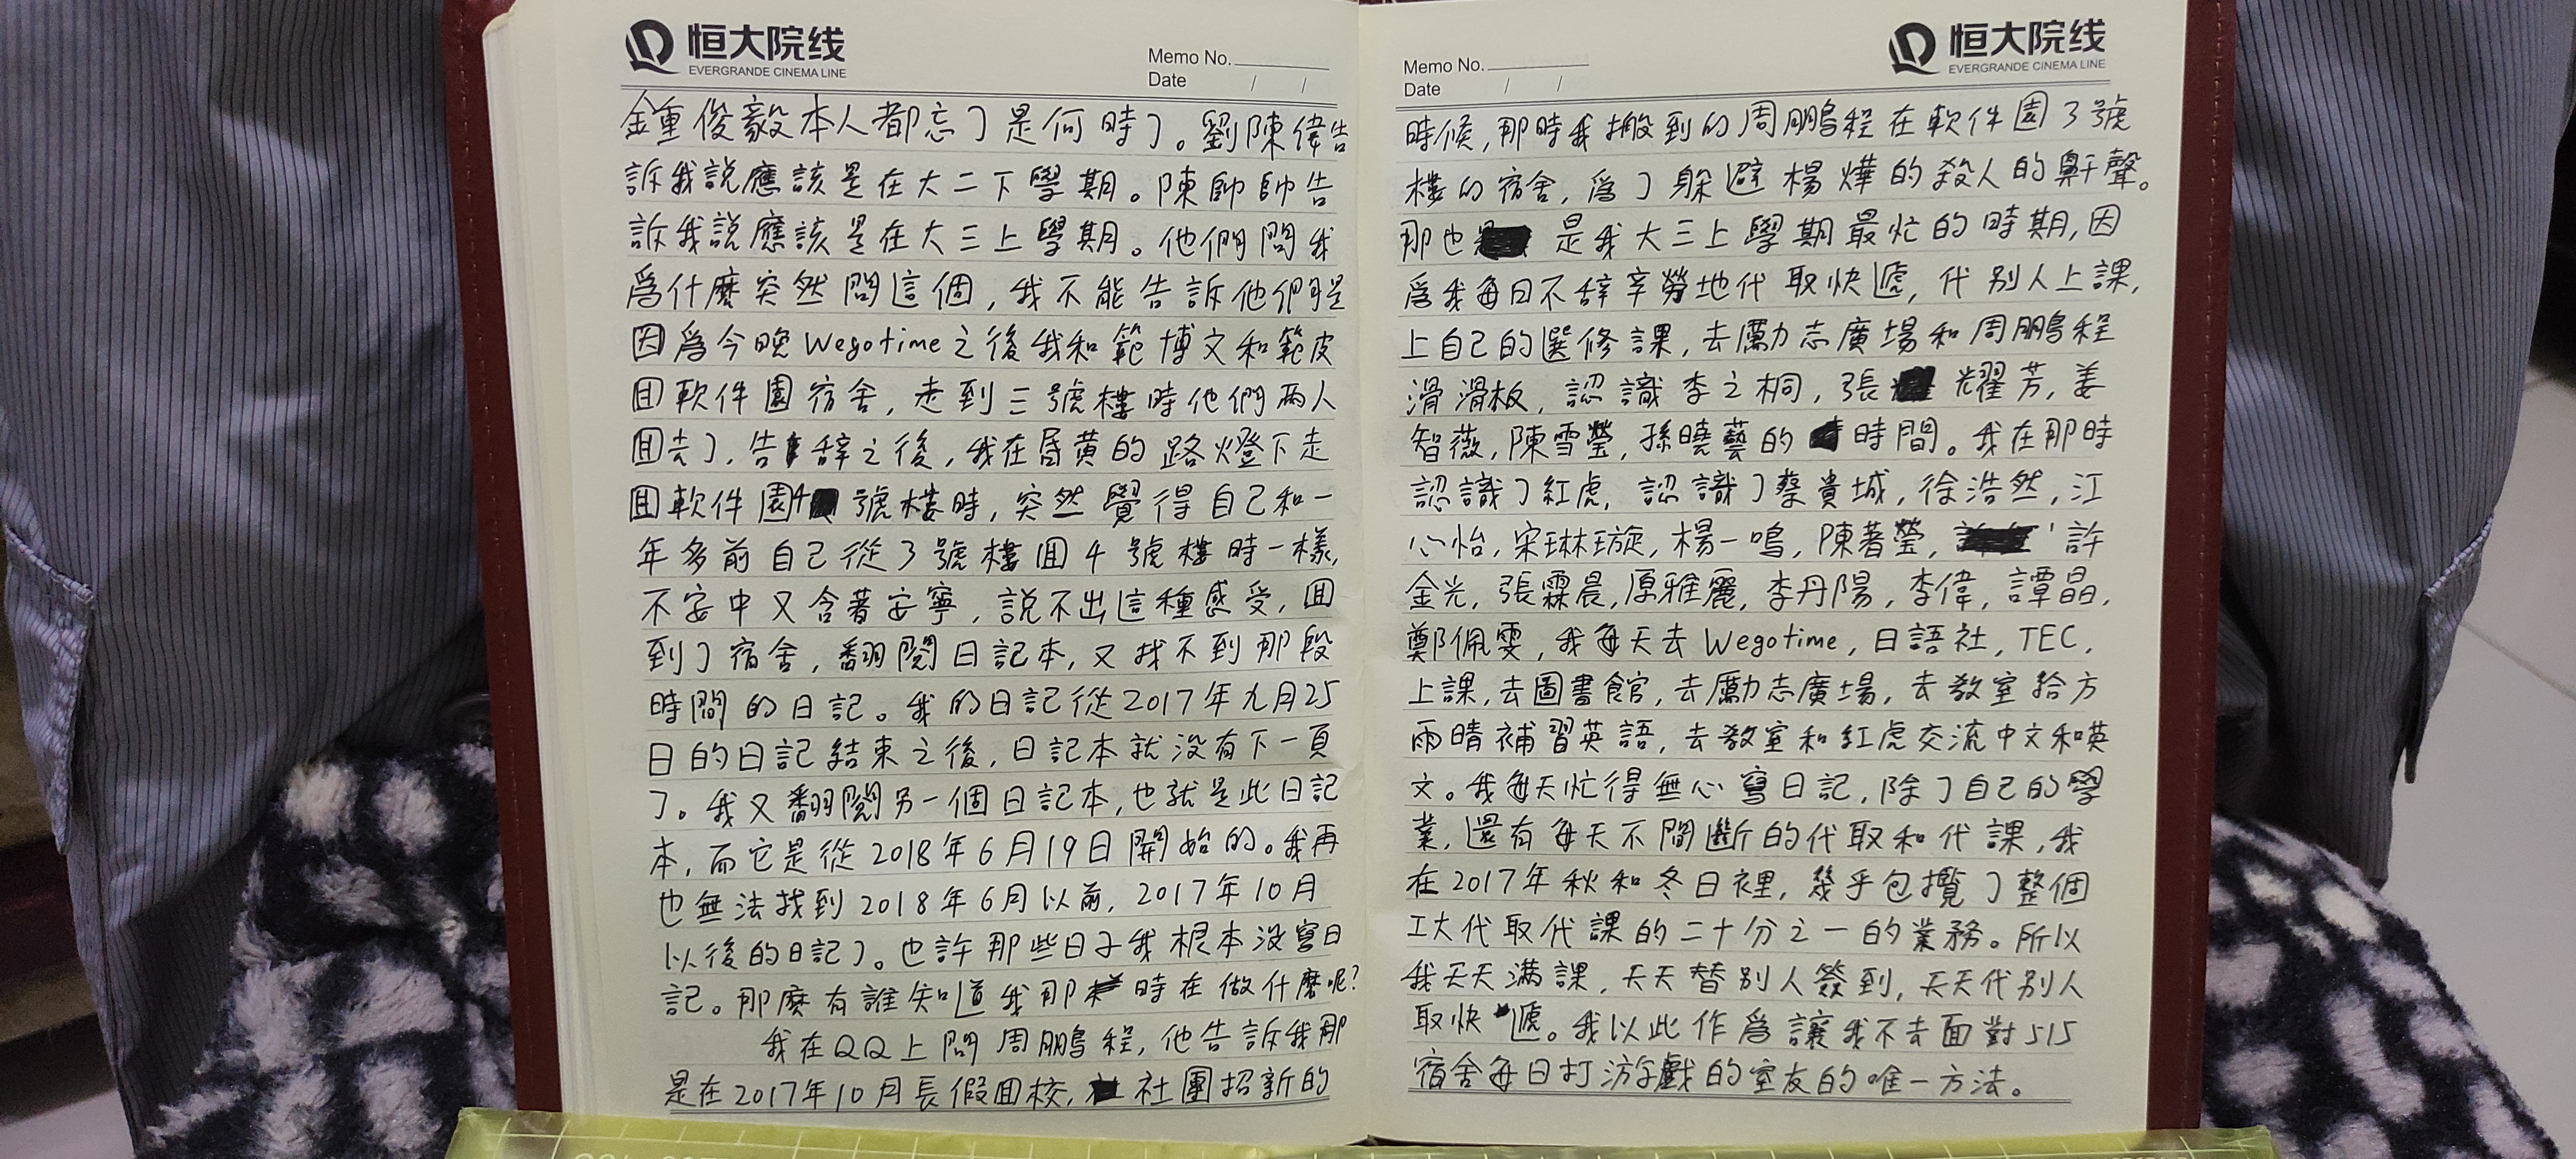 恒大院线
EVERGRANDE CINEMA LINE
Memo No.
Date / /
鍾俊毅本人都忘了是何時了。劉陳偉告
訴我説應該是在大二下學期。陳帥帥告
訴我説應該是在大三上學期。他們問我
爲什麽突然問這個,我不能告訴他們是
因爲今晚Wegotime之後我和範博文和範皮
囬軟件園宿舍,走到三號樓時他們兩人
囬去了,告辭之後,我在昏黄的路燈下走
囬軟件園4號樓時,突然覺得自己和一
年多前自己從3號樓囬4號樓時一樣,
不安中又含著安寧,説不出這種感受,囬
到了宿舍,翻閲日記本,又找不到那段
時間的日記。我的日記從2017年九月25
日的日記結束之後,日記本就没有下一頁
了。我又翻閲另一個日記本,也就是此日記
本,而它是從2018年6月19日開始的。我再
也無法找到2018年6月以前,2017年10月
以後的日記了。也許那些日子我根本没寫日
記。那麽有誰知道我那時在做什麽呢?
我在QQ上問周鵬程,他告訴我那
是在2017年10月長假囬校,社團招新的
恒大院线
EVERGRANDE CINEMA LINE
Memo No.
Date / /
時候,那時我搬到的周鵬程在軟件園3號
樓的宿舍,爲了躲避楊燁的殺人的鼾聲。
那也是我大三上學期最忙的時期,因
爲我每日不辞辛勞地代取快遞,代别人上課,
上自己的選修課,去勵志廣場和周鵬程
滑滑板,認識李之桐,張燿芳,姜
智薇,陳雪瑩,孫曉藝的時間。我在那時
認識了紅虎,認識了蔡貴城,徐浩然,江
心怡,宋琳璇,楊一鳴,陳著瑩,許
金光,張霖晨,原雅麗,李丹陽,李偉,譚晶,
鄭佩雯,我每天去Wegotime,日語社,TEC,
上課,去圖書館,去勵志廣場,去教室給方
雨晴補習英語,去教室和紅虎交流中文和英
文。我每天忙得無心寫日記,除了自己的學
業,還有每天不間斷的代取和代課,我
在2017年秋和冬日裡,幾乎包攬了整個
工大代取代課的二十分之一的業務。所以
我天天满課,天天替别人簽到,天天代别人
取快遞。我以此作爲讓我不去面對515
宿舍每日打游戲的室友的唯一方法。